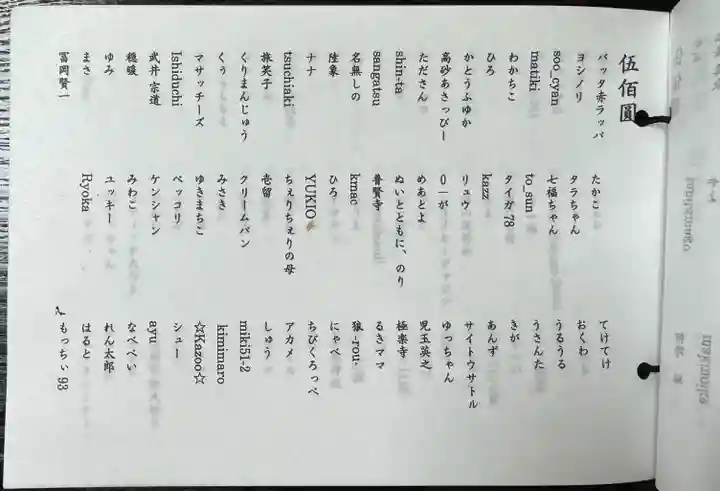 伍佰圓
バッタ赤ラッパ
ヨシノリ
soo_cyan
matiki
わかちこ
ひろ
かとうふゆか
高砂あさっぴー
たださん
shin-ta
sangatsu
名無しの
陸象
ナナ
tsuchiaki
旅笑子
くりまんじゅう
くぅ
マサッチーズ
Ishiduchi
武井 宗道
穏暖
ゆみ
まさ
冨岡賢一
たかこ
タラちゃん
七福ちゃん
to_sun
タイガ-78
kazz
リュウ
0一が
めあとよ
ぬいとともに、のり
普賢寺
kmac
ひろ
YUKIO
ちぇりちぇりの母
壱留
クリームパン
みさき
ゆきまちこ
ペッコリ
ケンシャン
みわこ
ユッキー
Ryoka
てけてけ
おくわ
うるうる
うさんた
きが
あんず
サイトウサトル
ゆっちゃん
児玉英之
極楽寺
るきママ
狼-rou-
にゃべ
ちびくろっぺ
アカメ
しゅう
miki51-2
kimimaro
☆Kazoo☆
シュー
ayu
なべべい
れん太郎
はると
もっちぃ93